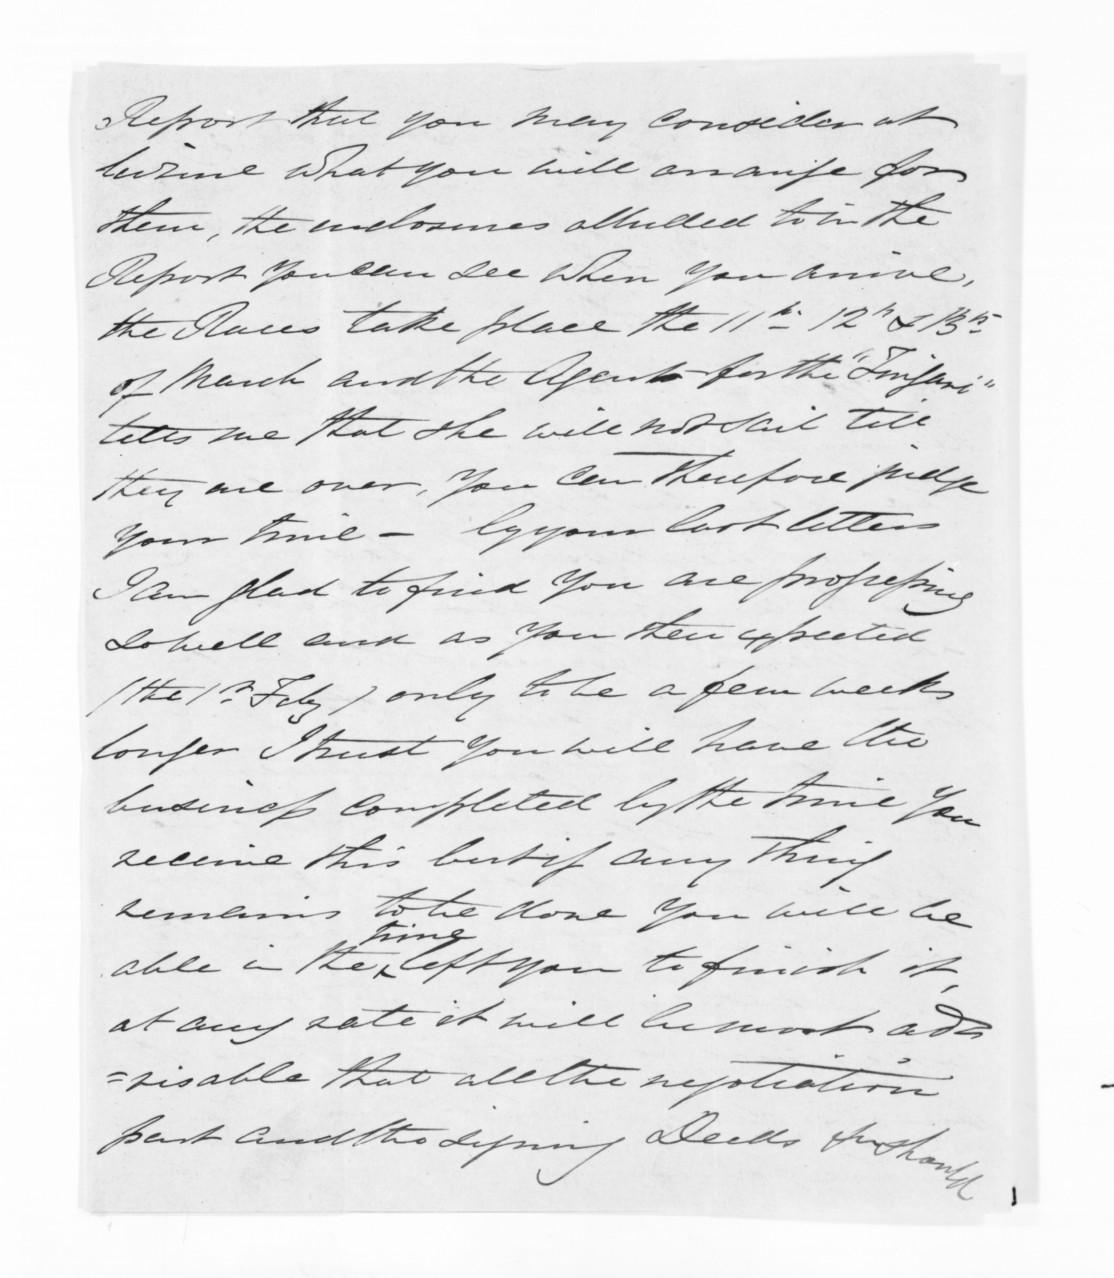 Report that you may consider at
leizure what you will arrange for
them, the enclosures alluded to in the
Report you can see when you arrive,
the Races take place the 11th 12th & 13th
of March and the Agent for the
tells me that she will not sail till
they are over, you can therefore judge
your time – by your last letters
I am glad to find you are progressing
so well and as you then expected
(the 1st Feby) only to be a few weeks
longer I trust you will have the
business completed by the time you
receive this but if any thing
remains to be done you will be
able in the time left you to finish it,
at any rate it will be most adv
=isable that all the negotiation
part and the signing Deeds &c should